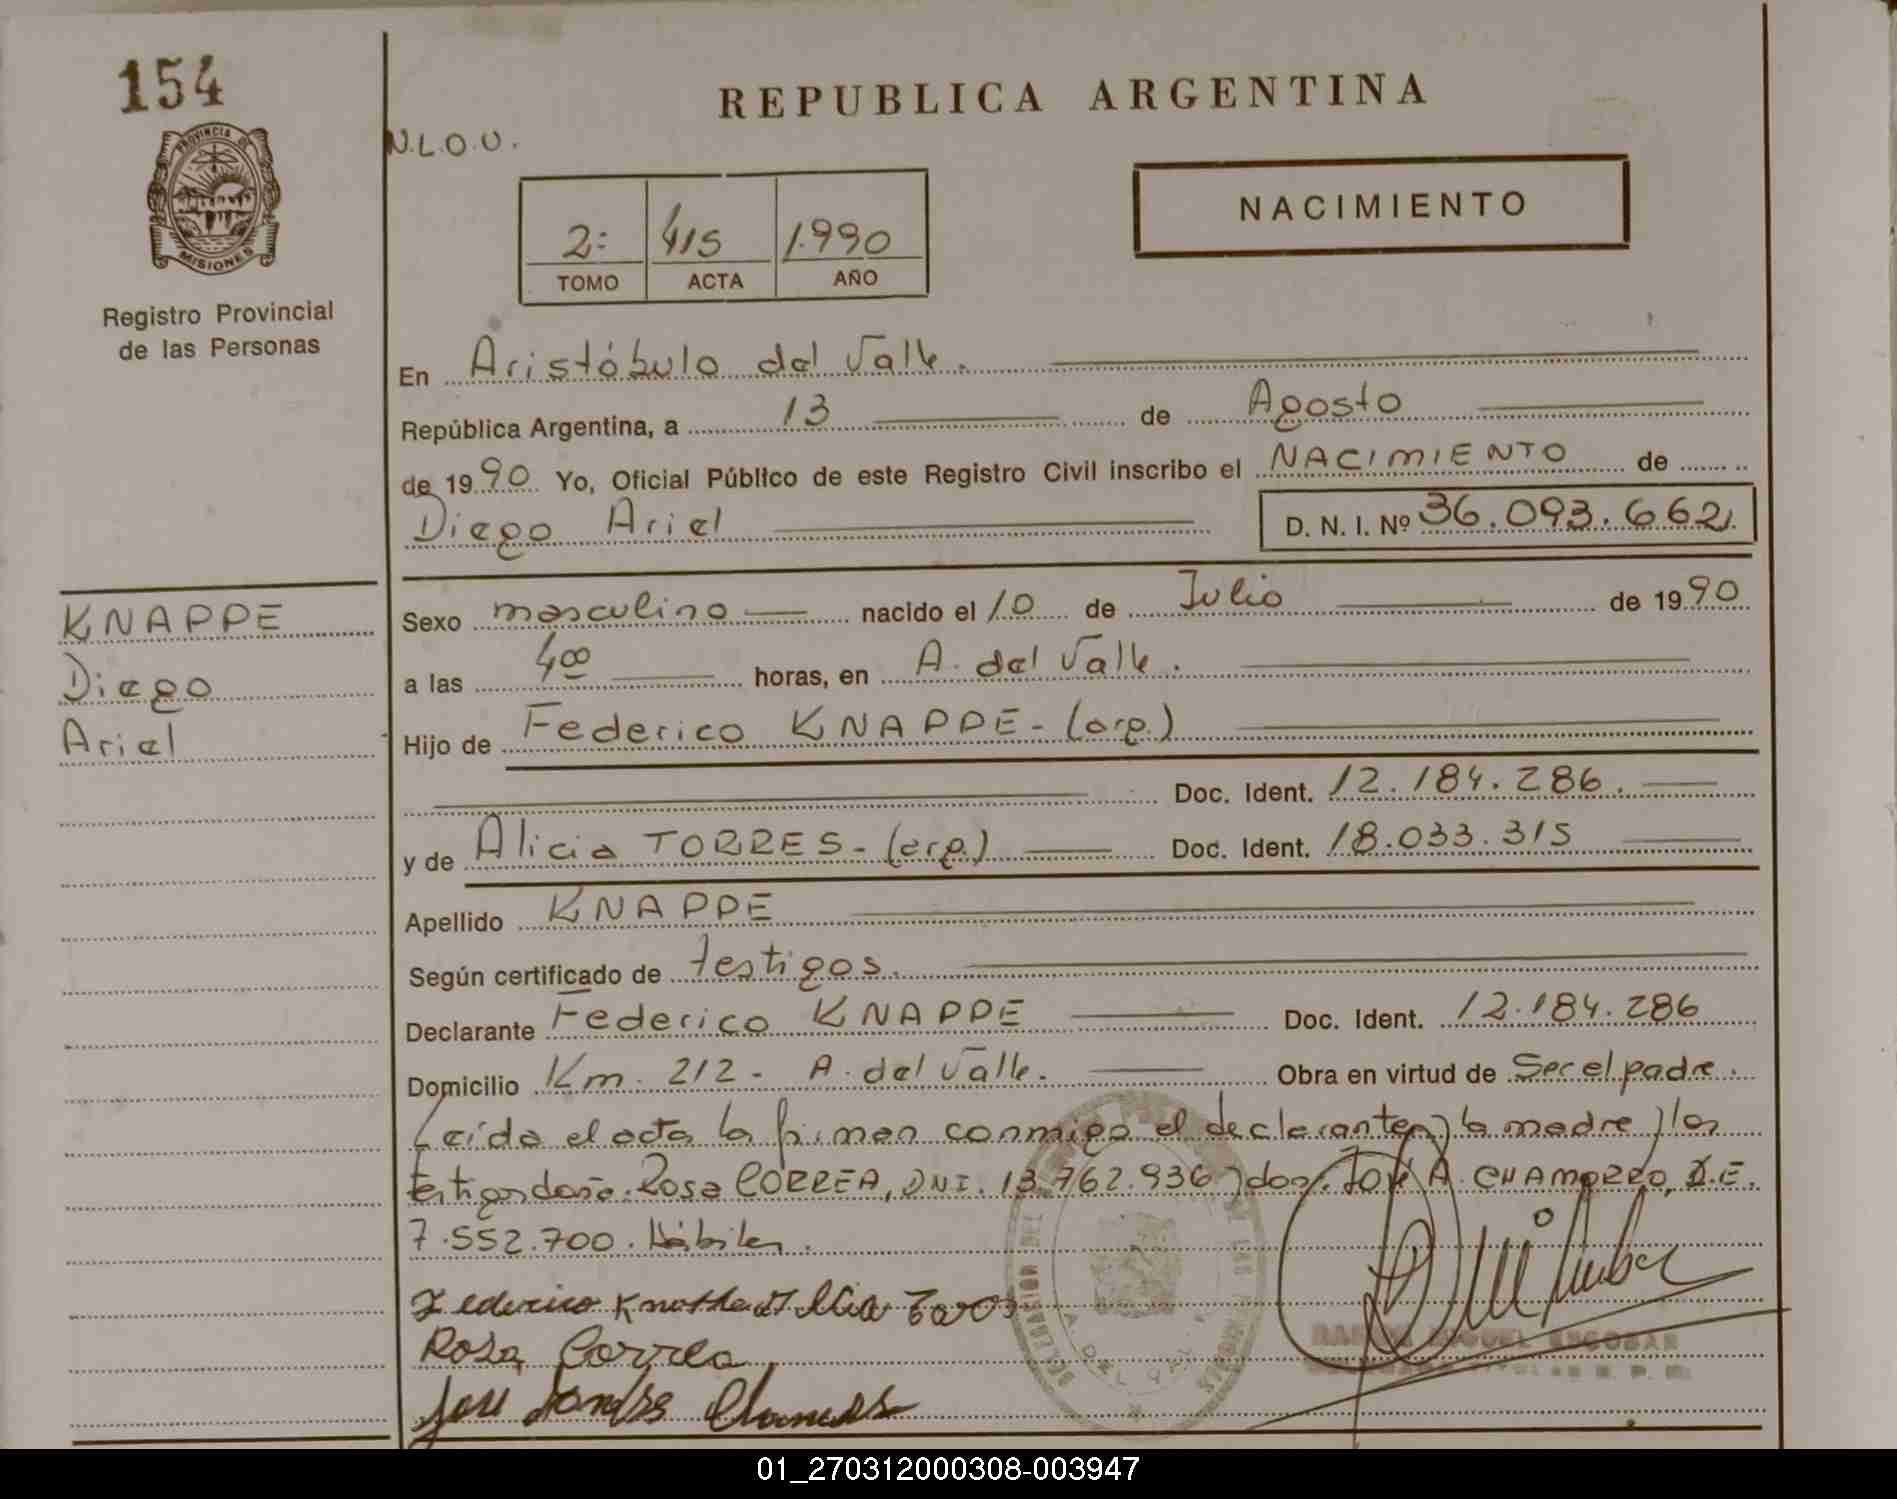 154
REPUBLICA ARGENTINA
N.L.O.U.
PROVINCIA DE
MISIONES
NACIMIENTO
2: 415 1.990
TOMO ACTA AÑO
Registro Provincial
de las Personas
En Aristóbulo del Valle.
República Argentina, a 13 de Agosto
de 1990 Yo, Oficial Público de este Registro Civil inscribo el NACIMIENTO de
Diego Ariel D. N. I. Nº 36.093.662
KNAPPE
Diego
Ariel
Sexo masculino nacido el 10 de Julio de 1990
a las 4 00 horas, en A. del Valle.
Hijo de Federico KNAPPE - (arg.)
Doc. Ident. 12.184.286.
y de Alicia TORRES - (arg.) Doc. Ident. 18.033.315
Apellido KNAPPE
Según certificado de testigos.
Declarante Federico KNAPPE Doc. Ident. 12.184.286
Domicilio Km. 212 - A. del Valle. Obra en virtud de Ser el padre.
Leída el acta la firman conmigo el declarante, la madre y los
testigos doña Rosa CORREA, DNI. 13.762.936 y don José A. CHAMORRO, D.E.
7.552.700. Hábiles.
Rosa Correa
01_270312000308-003947